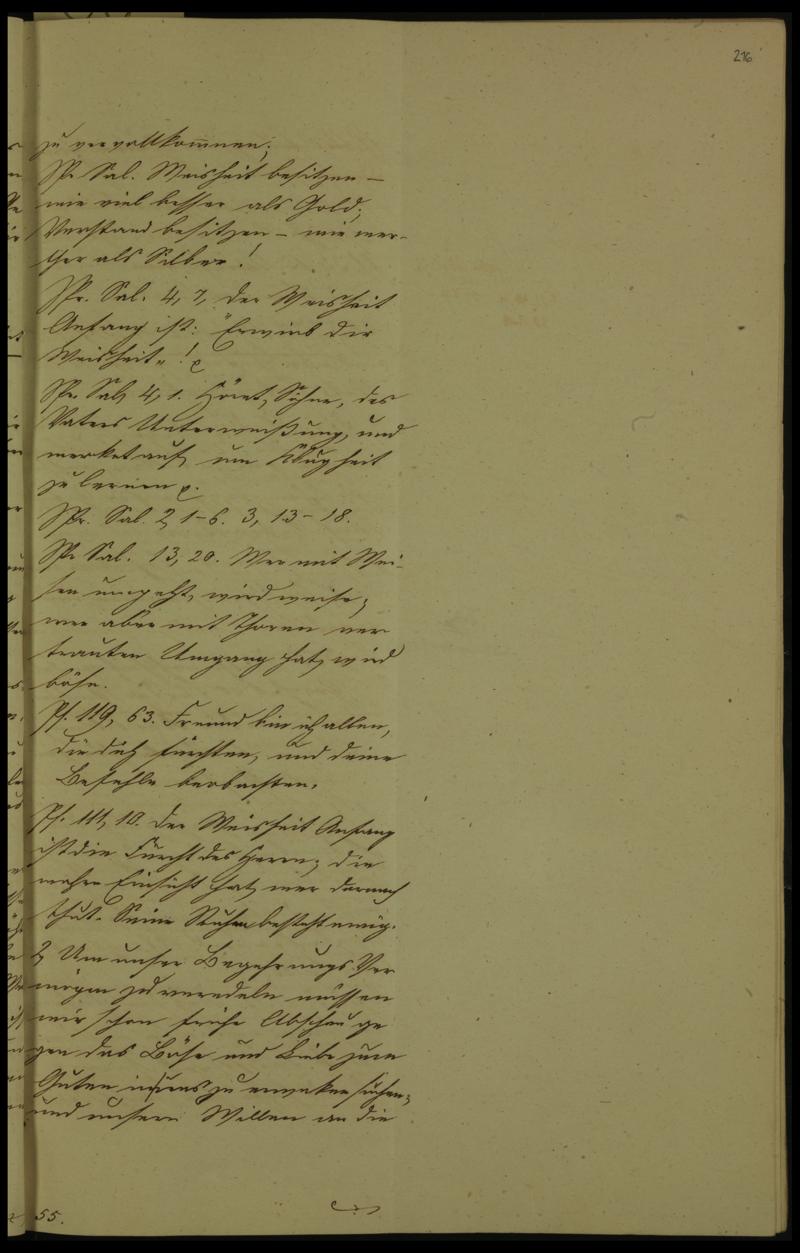 216
zu vervollkom̄nen;
Spr. Sal. Weisheit besitzen —
wie viel besser als Gold;
Verstand besitzen — wie wer-
ther als Silber!
Spr. Sal. 4, 7, der Weisheit
Anfang ist: "Erwirb dir
Weisheit„!
Spr. Sal, 4, 1. Höret, Söhne, des
Vaters Unterweißung, und
merket auf, um Klugheit
zu lernen
Spr. Sal. 2, 1-6. 3, 13-18.
Spr. Sal. 13, 20. Wer mit Wei-
sen umgeht, wird weise;
wer aber mit Thoren ver
trauten Umgang hat, wird
böse.
Ps. 119, 63. Freund bin ich allen,
die dich fürchten, und deine
Befehle beobachten.
Ps. 111, 10. Der Weisheit Anfang
ist die Furcht des Herrn; die
wahre Einsicht hat, wer darnach
thut. Sein Ruhm besteht ewig.
2, Um unser Begehrungs Ver
mögen zu veredeln müssen
wir schon frühe Abscheu ge
gen das Böse und Liebe zum
Guten in uns zu erweken suchen;
und unsern Willen an die
55.